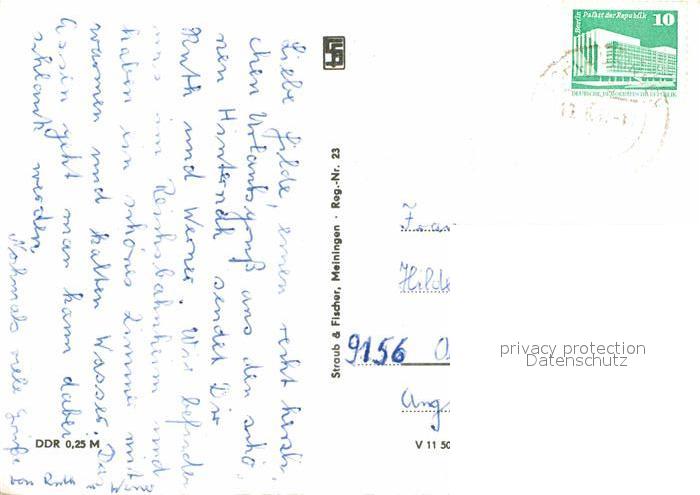 Liebe Hilde, einen recht herzli-
chen Urlaubsgruß aus den schö-
nen sendet Dir
Ruth und Werner. Wir befinden
uns im Reichsbahnheim und
haben ein schönes Zimmer mit
warmen und kalten Wasser. Das
Essen geht man kann dabei
schlank werden.
Nochmals viele Grüße
von Ruth u.
Straub & Fischer, Meiningen · Reg.-Nr. 23
DDR 0,25 M
V 11 50
Berlin
Palast der Republik 10
DEUTSCHE DEMOKRATISCHE REPUBLIK
Frau
Hilde
9156
privacy protection
Datenschutz